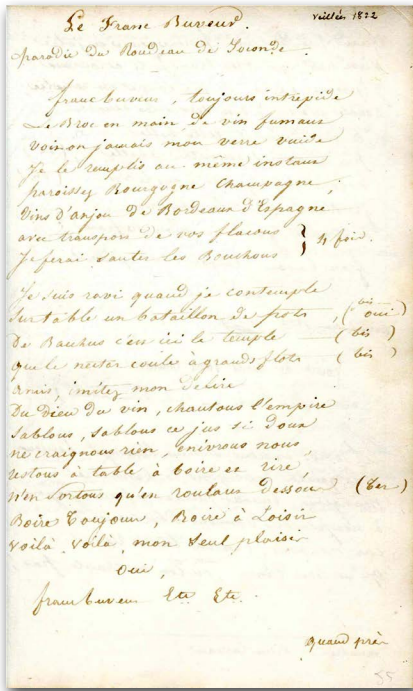 Veillées 1822
Le Franc Buveur.
parodie Du Rondeau de Joconde
franc buveur, toujours intrepide
Le Broc en main de vin fumant
voit-on jamais mon verre vuide
Je le remplis au même instant
paroissez Bourgogne Champagne,
Vins d'anjou de Bordeaux d'Espagne
avec transport de vos flacons } 4 fois.
Je ferai sauter les Bouchons
Je suis ravi quand je contemple
Sur table un bataillon de pots, (bis oui)
De Bacchus c'est ici le temple (bis)
que le nectar coule à grands flots (bis)
amis, imitez mon Délire
Du Dieu du vin, chantons l'empire
Sablons, Sablons ce jus si Doux
ne craignons rien, enivrons nous
restons à table à boire et rire
n'en Sortons qu'en roulant dessous (ter)
Boire Toujours, Boire à Loisir
Voilà, Voilà, mon Seul plaisir
Oui,
franc buveur Etc Etc.
Quand près
55